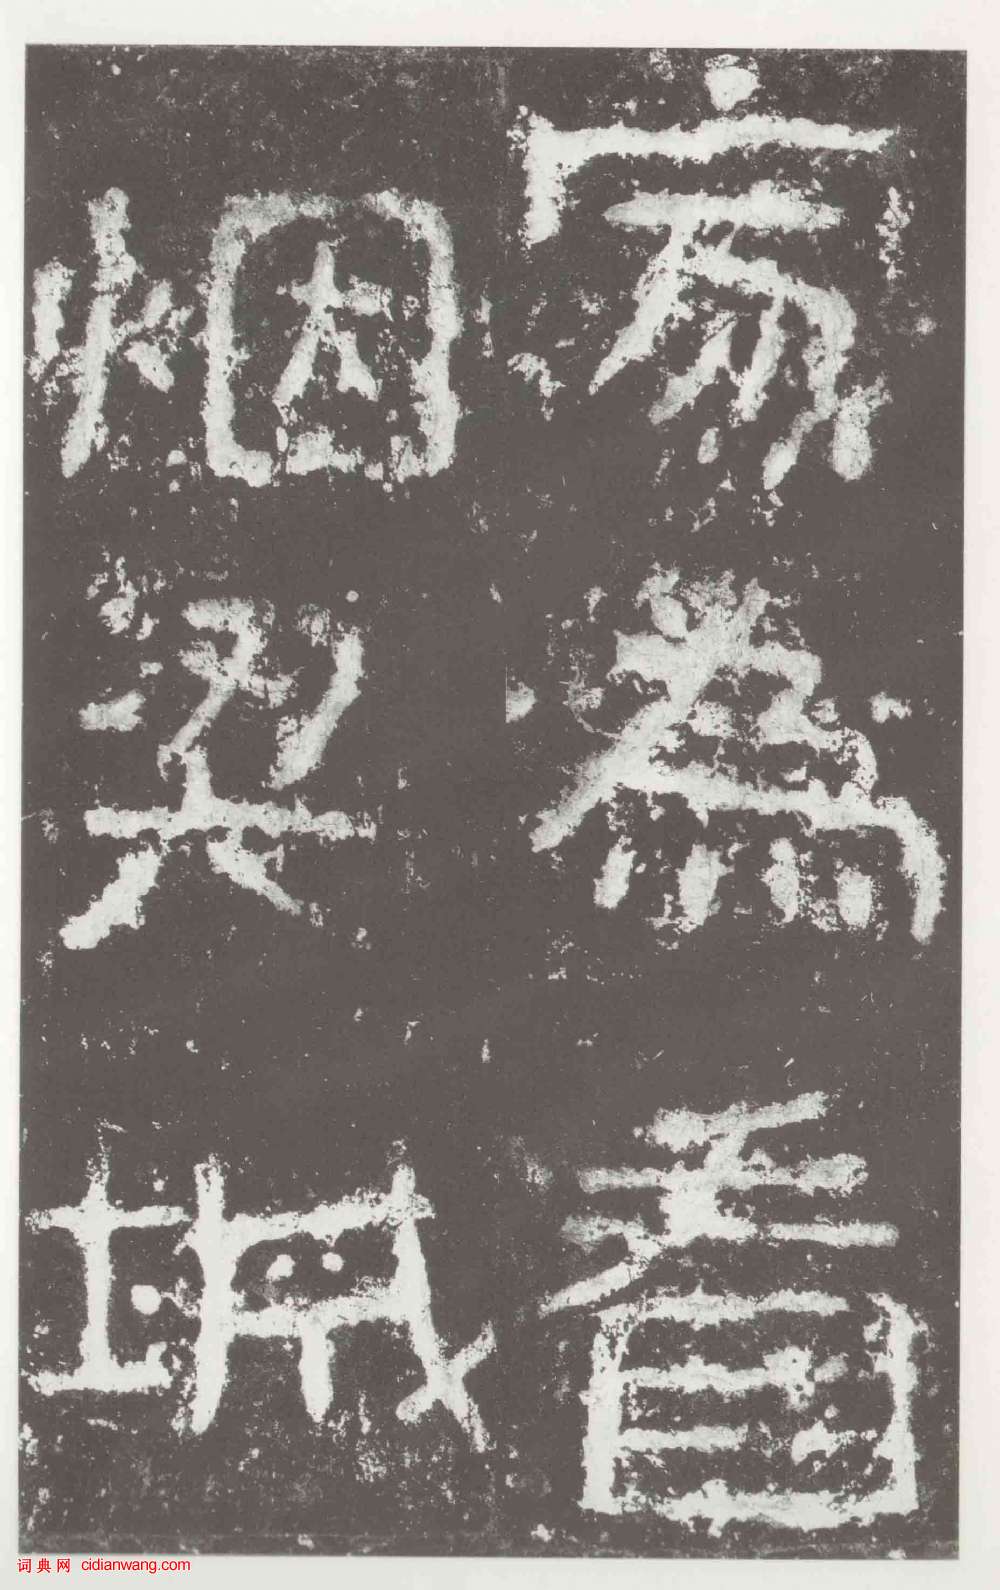 家為看
烟梁城
词典网 cidianwang.com